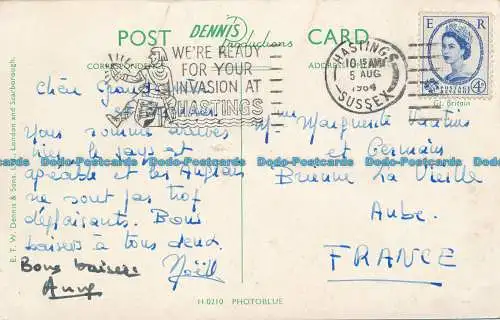 POST CARD
DENNIS
Productions
CORRESPONDENCE
WE'RE READY
FOR YOUR
INVASION AT
HASTINGS
HASTINGS
10-15 AM
5 AUG
1964
SUSSEX
E R
4D
Chère Grand
et
Vous sommes arrivés
hier le pays est
agréable et les Anglais
ne sont pas trop
déplaisants. Bons
baisers à tous deux.
Noëll
Bons baisers
Anny
Mme Marguerite
et Germain
Brienne La Vieille
Aube.
FRANCE
E. T. W. Dennis & Sons Ltd., London and Scarborough.
H.0210 PHOTOBLUE
Dodo-Postcards Dodo-Postcards Dodo-Postcards Dodo-Postcards Dodo-Postcards